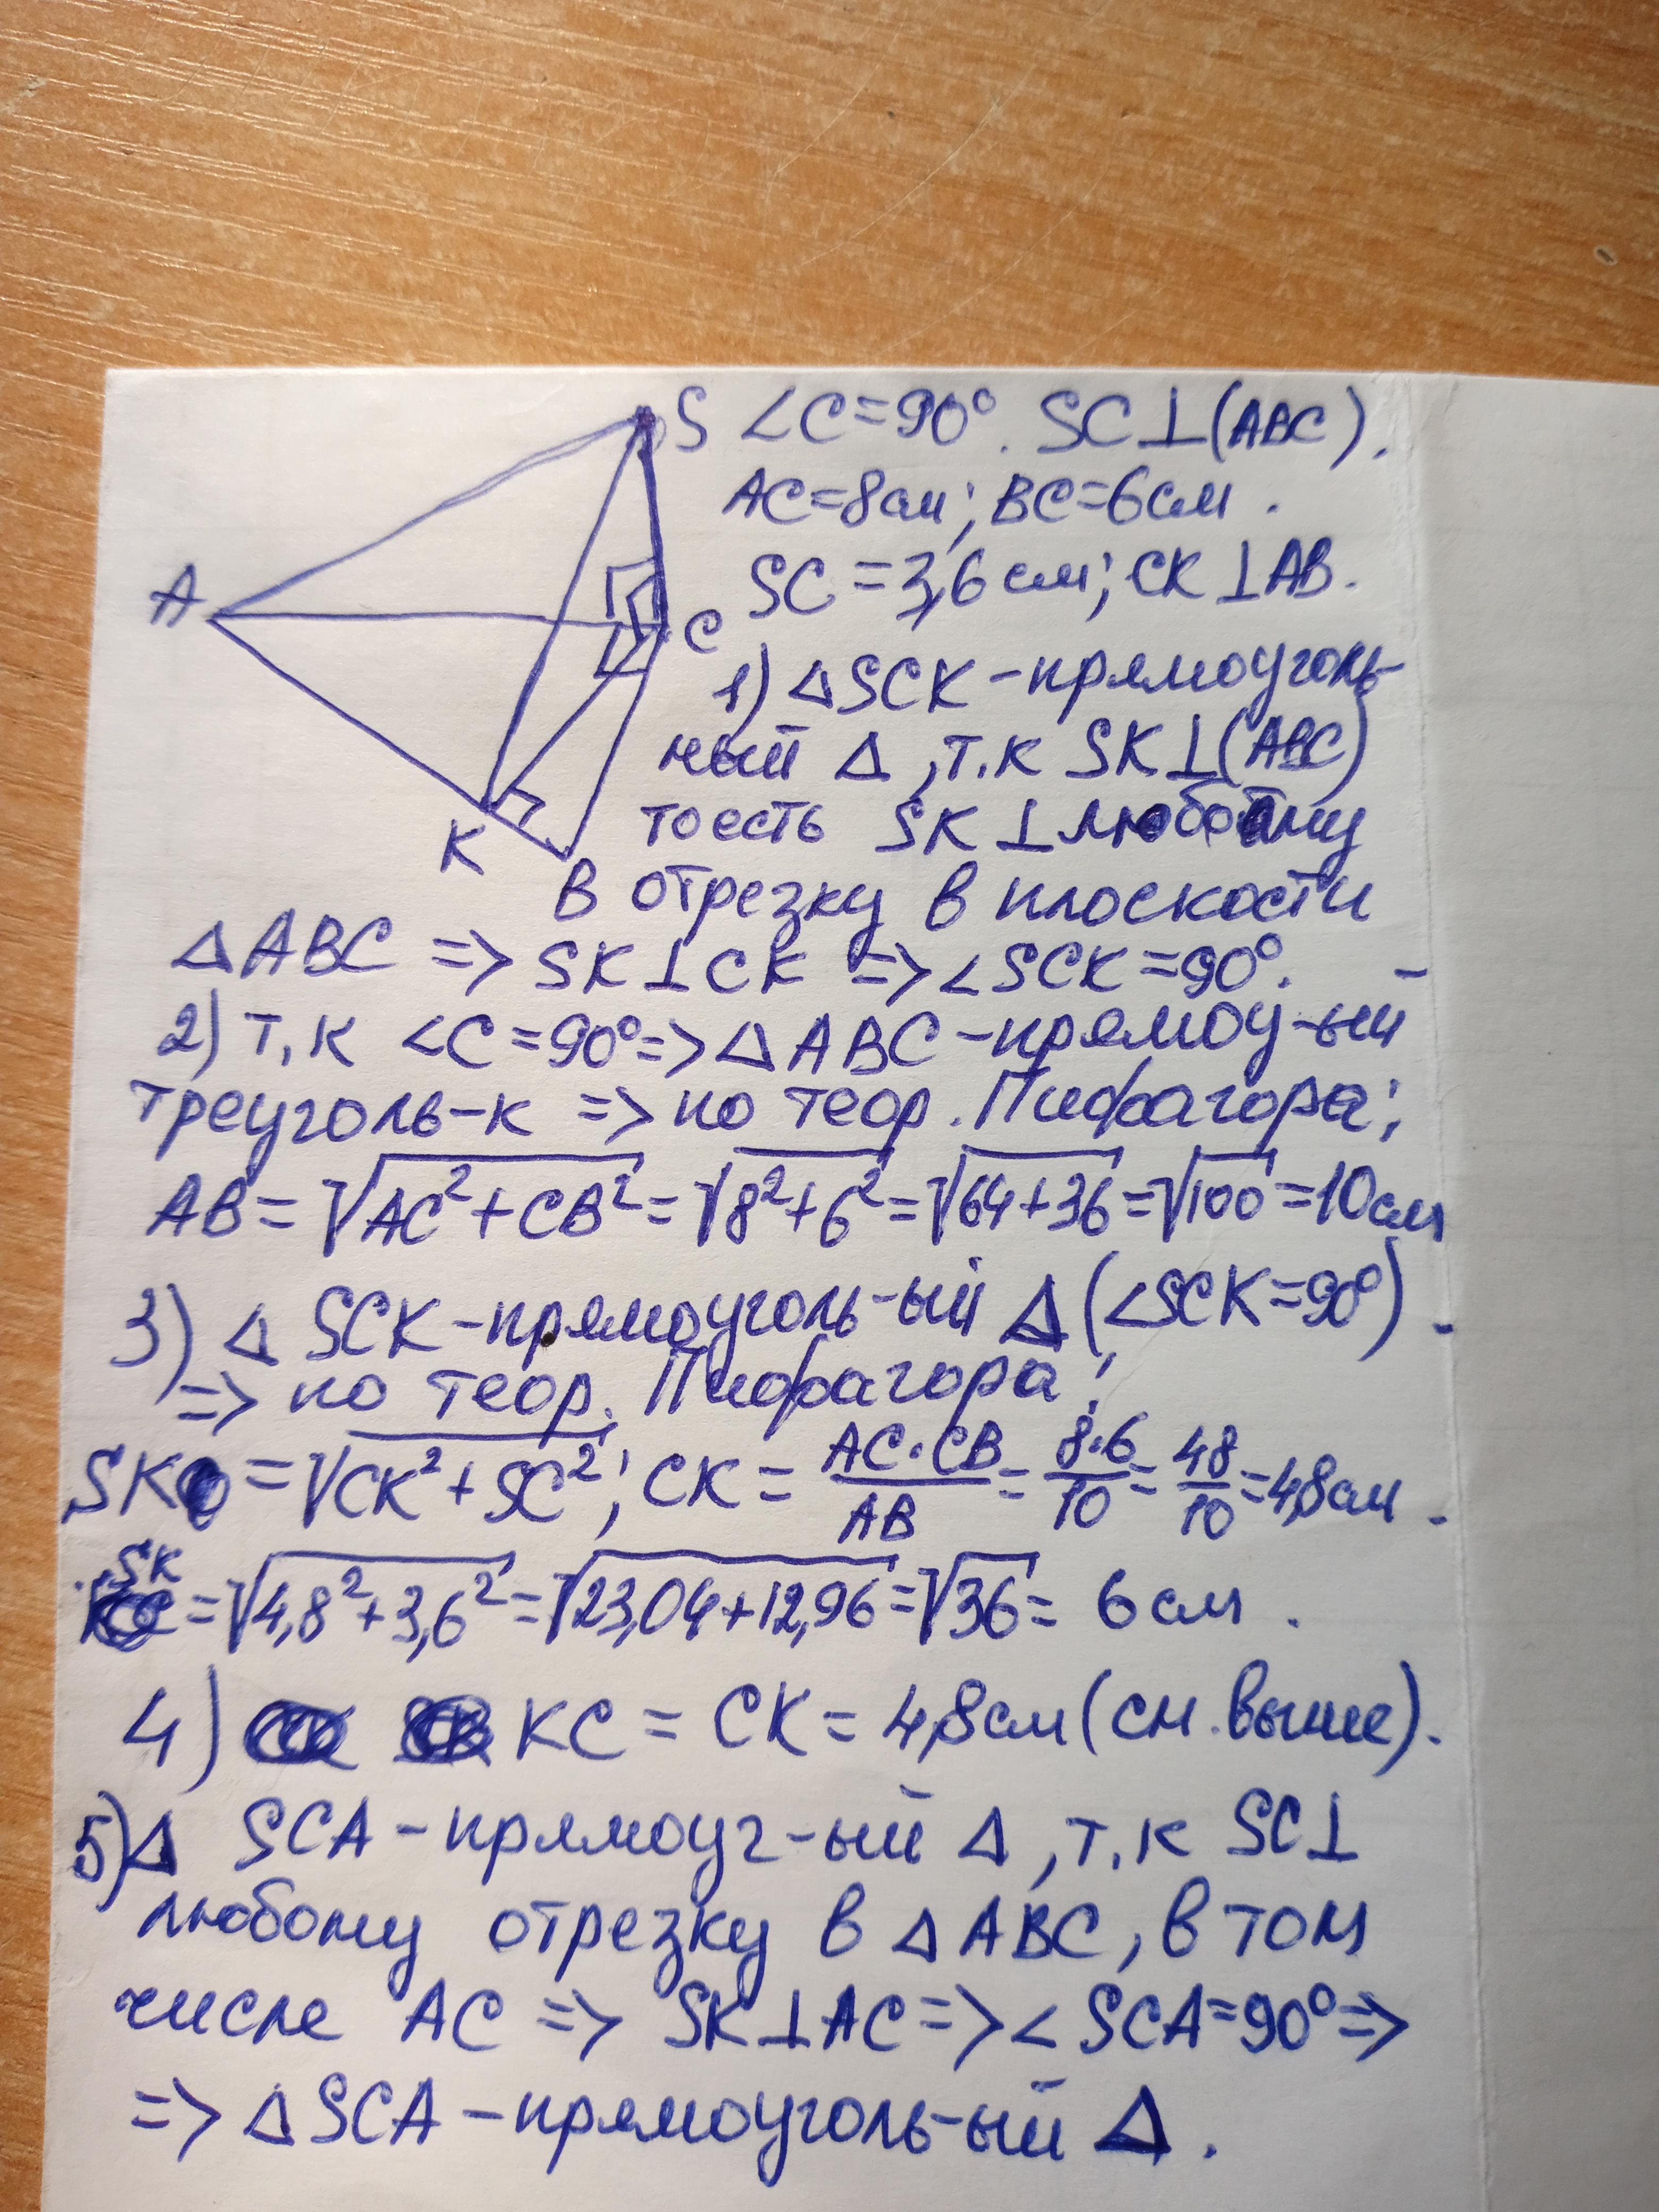 S ∠C=90°. SC⊥(ABC).
AC=8см; BC=6см.
A SC=3,6см; CK⊥AB.
C
1) ΔSCK-прямоуголь-
ный Δ, т.к SK⊥(ABC)
K тоесть SK⊥любому
B отрезку в плоскости
ΔABC => SK⊥CK => ∠SCK=90°.
2) т.к ∠C=90°=>ΔABC-прямоу-ый
треуголь-к => по теор. Пифагора;
AB=√AC²+CB²=√8²+6²=√64+36=√100=10см
3) Δ SCK-прямоуголь-ый Δ(∠SCK=90°).
=> по теор. Пифагора;
SK=√CK²+SC²; CK=AC·CB/AB=8·6/10=48/10=4,8см.
SK=√4,8²+3,6²=√23,04+12,96=√36=6см.
4) KC=CK=4,8см(см.выше).
5)Δ SCA-прямоуг-ый Δ, т.к SC⊥
любому отрезку в ΔABC, в том
числе AC => SK⊥AC=>∠SCA=90°=>
=> ΔSCA-прямоуголь-ый Δ.